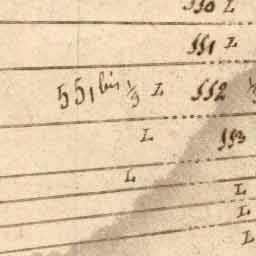 550 L
551 L
551 bis 1/9 L 552
L 553
L
L
L
L